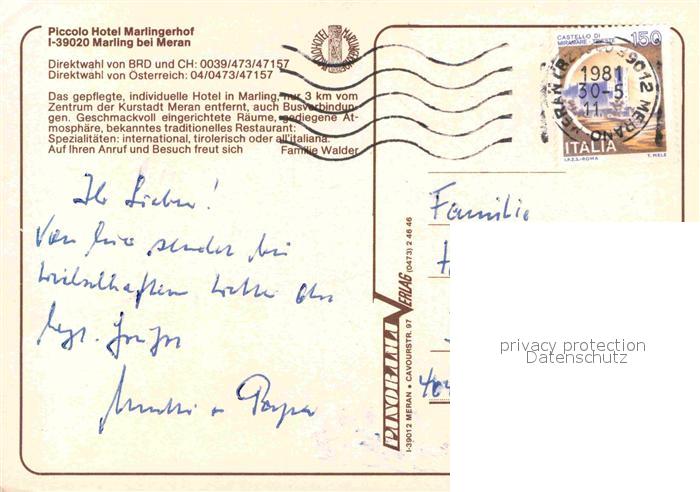 Piccolo Hotel Marlingerhof
I-39020 Marling bei Meran
Direktwahl von BRD und CH: 0039/473/47157
Direktwahl von Österreich: 04/0473/47157
Das gepflegte, individuelle Hotel in Marling, nur 3 km vom
Zentrum der Kurstadt Meran entfernt, auch Busverbindun-
gen. Geschmackvoll eingerichtete Räume, gediegene At-
mosphäre, bekanntes traditionelles Restaurant:
Spezialitäten: international, tirolerisch oder all'italiana.
Auf Ihren Anruf und Besuch freut sich
Familie Walder
Ihr Lieben!
Von hier sendet bei
wechselhaftem Wetter
herzl. Grüße
Mutti u Papa
PANORAMA VERLAG (0473) 2 46 46
I-39012 MERAN • CAVOURSTR. 97
CASTELLO DI
MIRAMARE - TRIESTE
150
ITALIA
I.P.Z.S.-ROMA
T. MELE
39012 MERANO
1981
30-5
11
Familie
privacy protection
Datenschutz